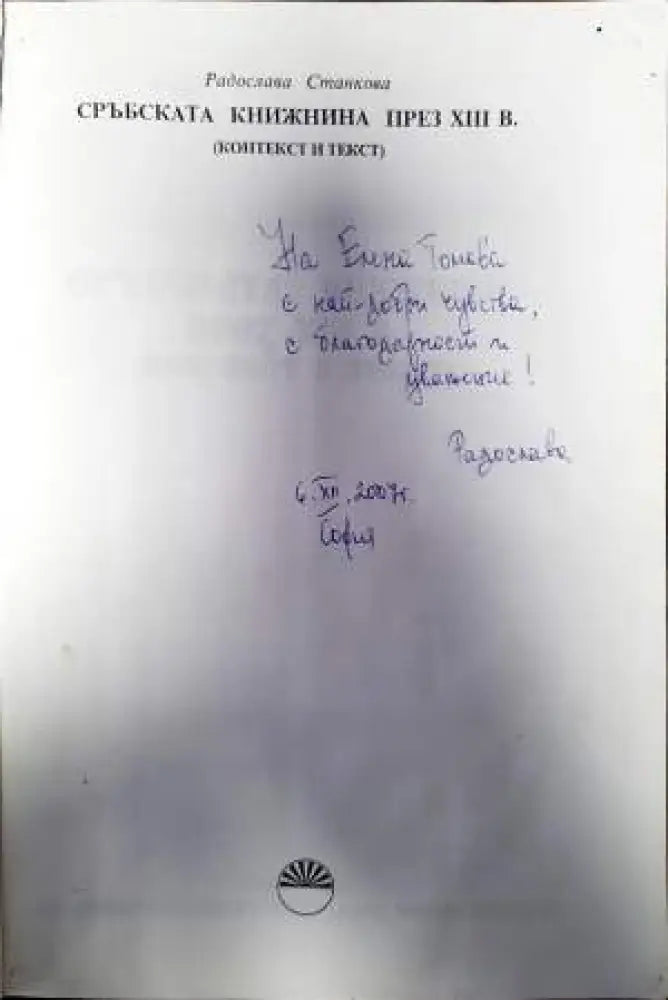 Радослава Станкова
СРЪБСКАТА КНИЖНИНА ПРЕЗ XIII В.
(КОНТЕКСТ И ТЕКСТ)
На Елена Томова
с най-добри чувства,
с благодарност и
уважение!
Радослава
6.XII.2007г.
София